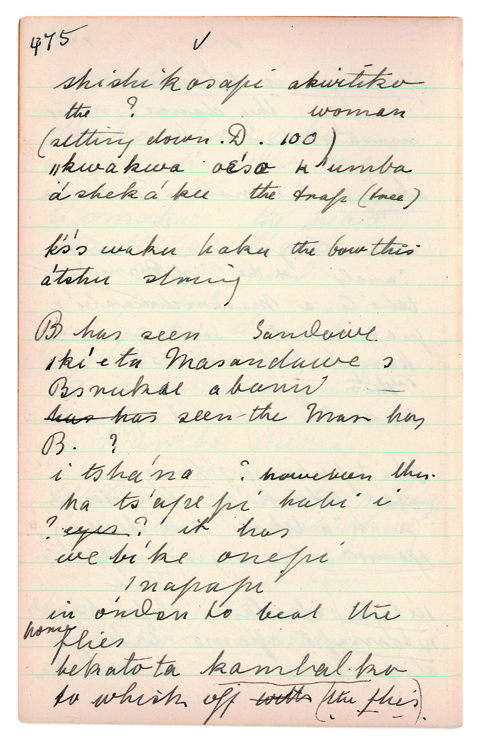 475 ✓
shishikosapi akwitiko
the ? woman
(setting down. D. 100)
ǁkwakwa óéso ts'umba
á sheká ku the trap (tree)
ks's waku haku the bow this
átshu string
B has seen Sandawe
Masandawe s
abann'
has has seen the Man has
B. ?
i tshá'na ?
ha ts'apepi habi i
? eyes ? it has
we bi'ke onepi
ǀnapapi
in order to beat the
flies
bekatota kambalko
to whisk off with (the flies).